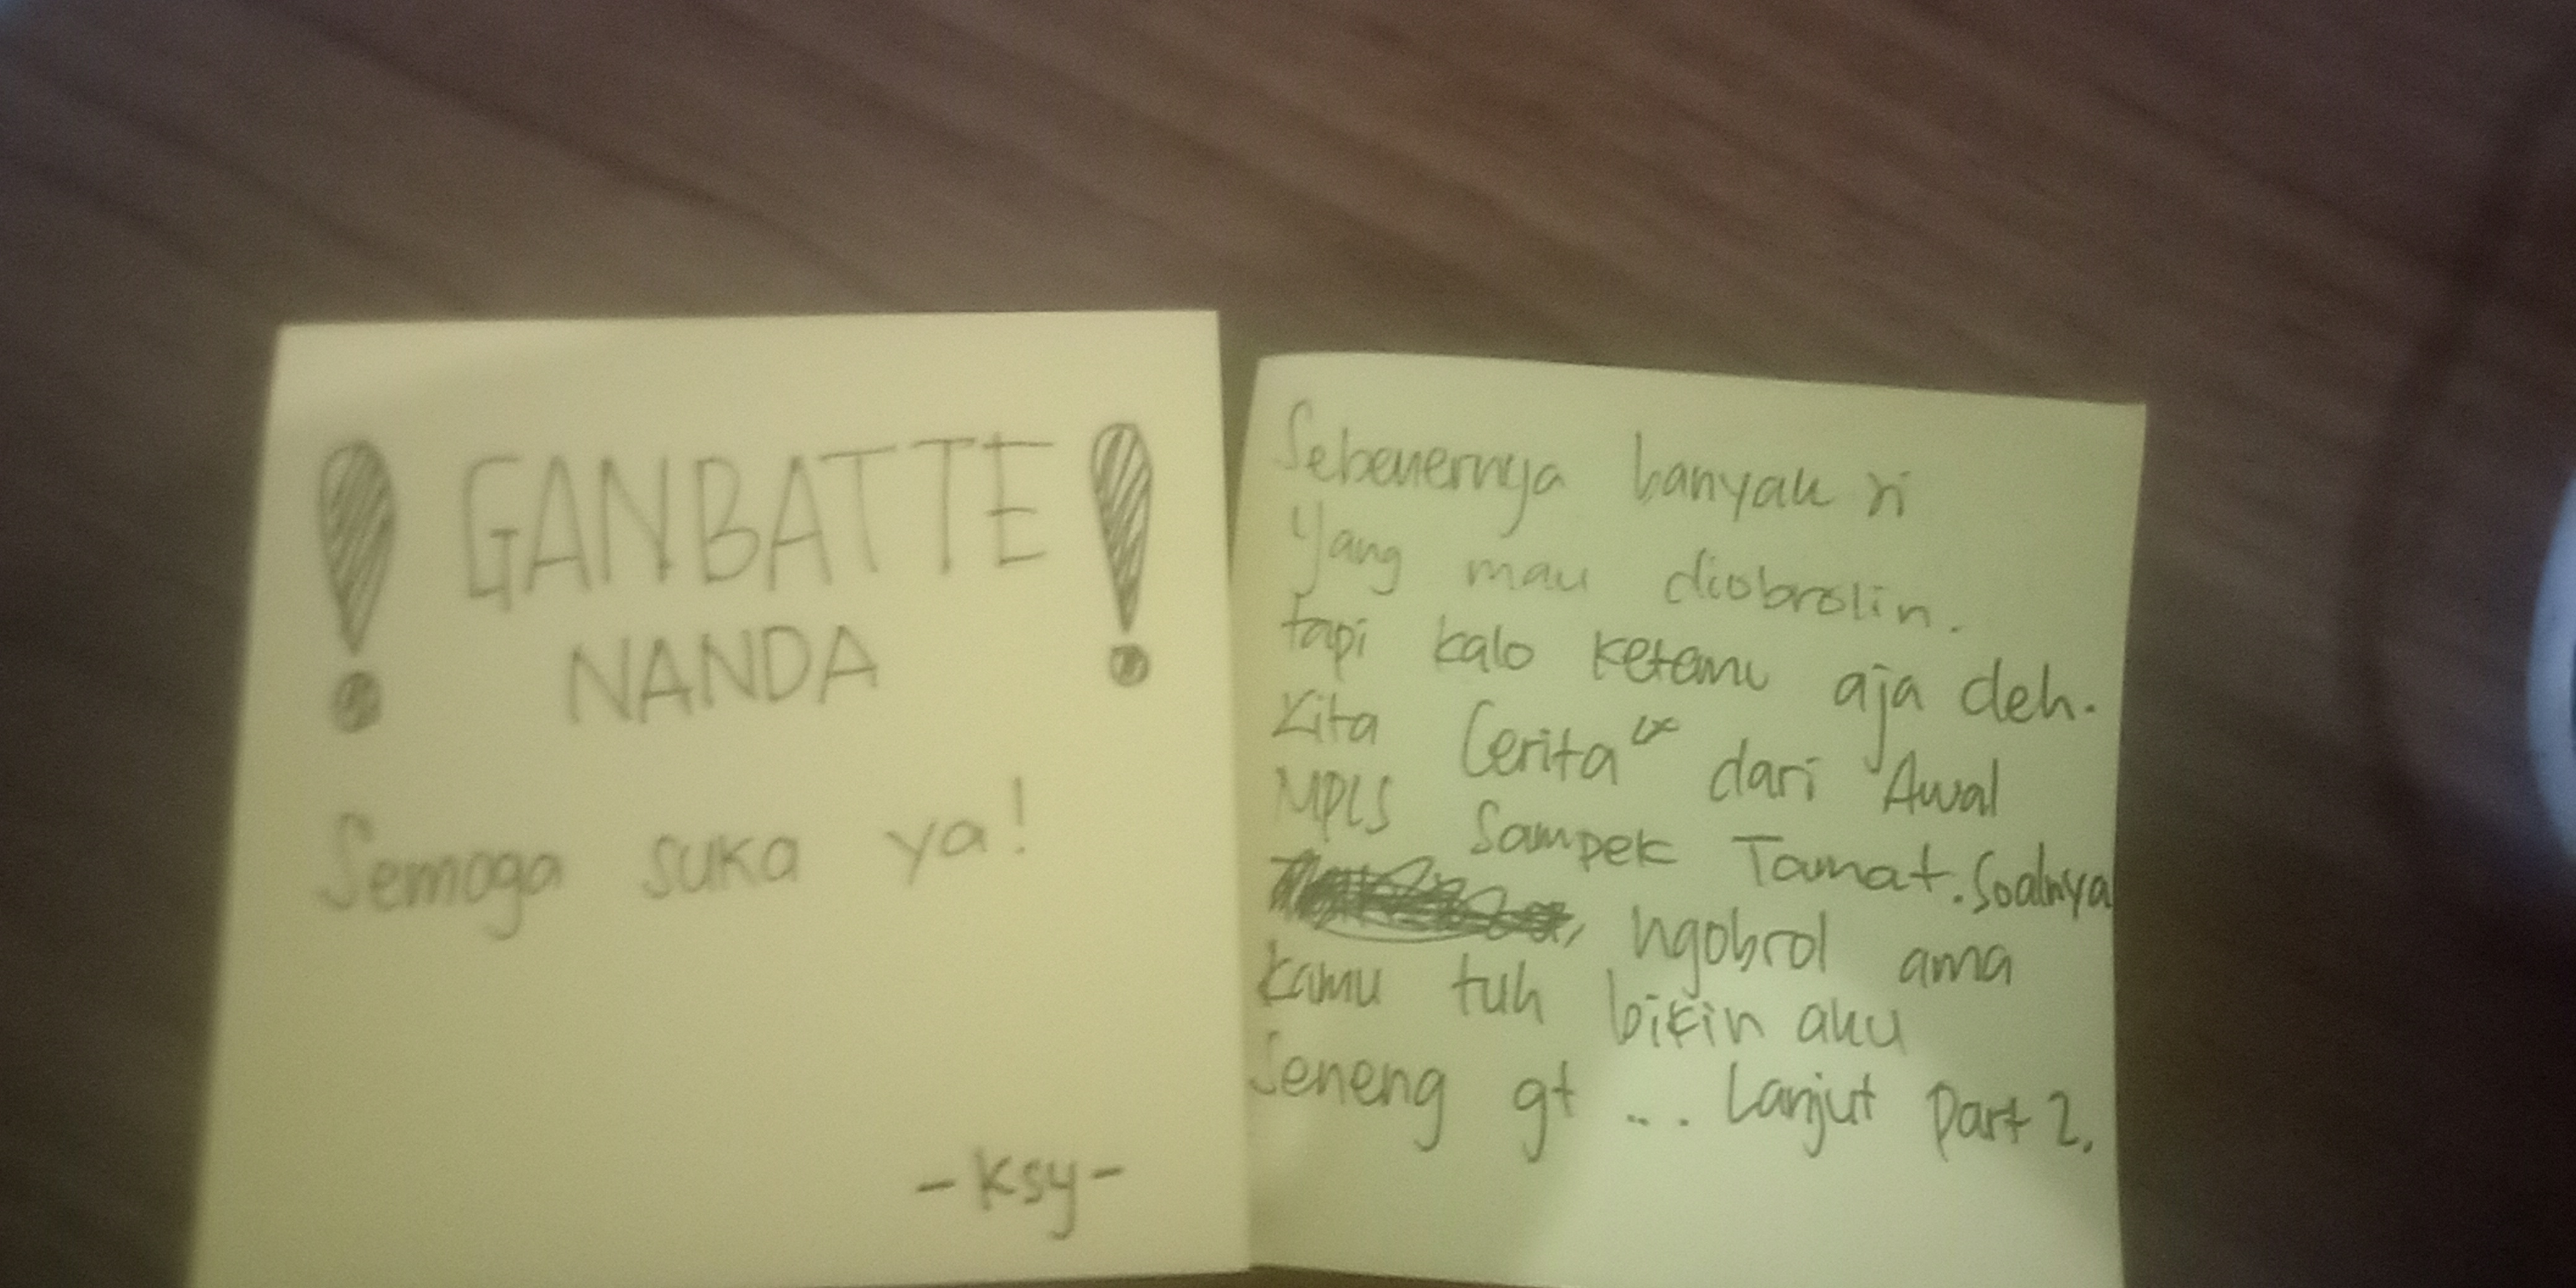 ! GANBATTE !
NANDA
Semoga suka ya!
- Ksy -
Sebenernya banyak si
yang mau diobrolin.
tapi kalo ketemu aja deh.
Kita Cerita" dari Awal
MPLS Sampek Tamat. Soalnya
ngobrol ama
kamu tuh bikin aku
Seneng gt ... Lanjut Part 2.